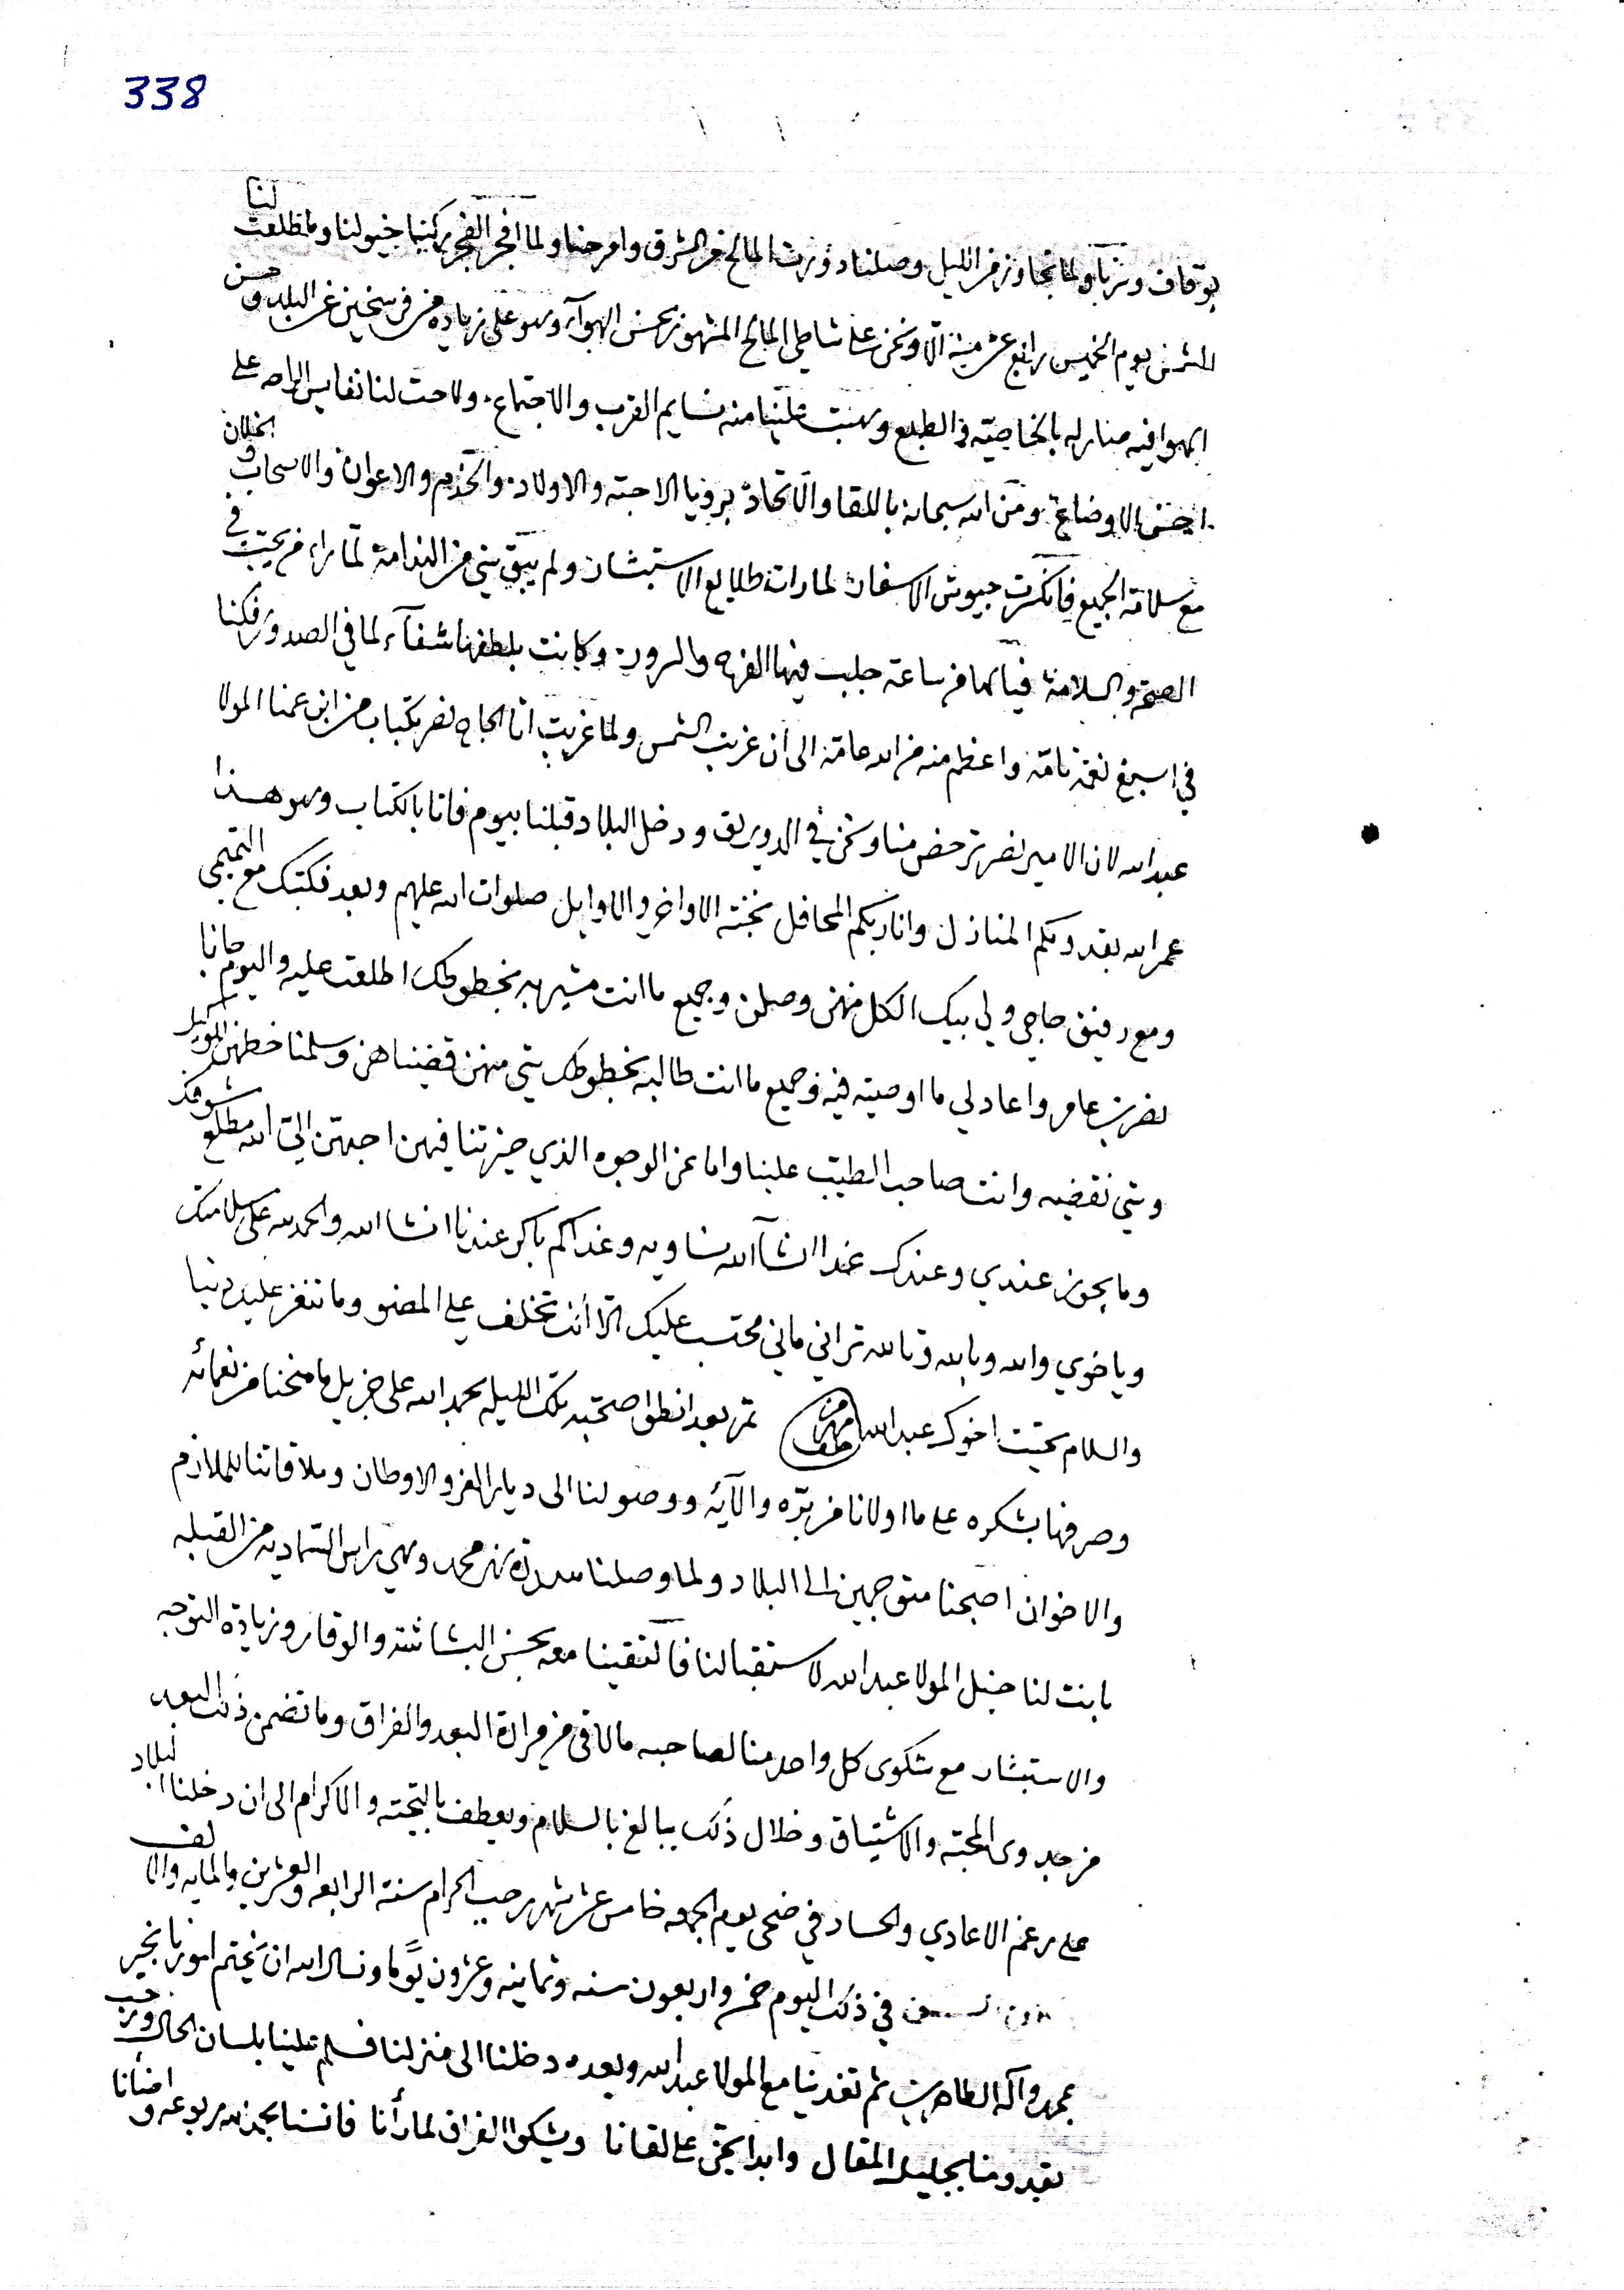 338
بوقاف ونزبا ولما تجاوز من الليل وصلنا المالح من الشرق وامرحنا ولما افجر الفجر ركبنا خيولنا وما طلعت لنا
الشمس يوم الخميس رابع عشر منه الا ونحن على شاطي المالح المشهور بحسن الهوآء وهو على زياده من فرسخين عن البلد وحسن
الهوا فيه بالخاصيّه في الطبع وهبت علينا منه نسايم القرب والاجتماع ولاحت لنا نفايس الراحه على
احسن الاوضاع ومنّ الله سبحانه باللقا والاتحاد برويا الاحبته والاولاد والخدم والاعوان والاصحاب والخلان
مع سلامة الجميع فانكسرت جيوش الاسفار لما رات طلايع الاستبشار ولم يبق شي من الندامة لما راء من يحبّ في
الصحة والسلامة فيالها من ساعة جلب فيها الفرح والسرور وكانت بلطفها شفآء لما في الصدور فكنا
في اسبغ نعمة تامّة واعظم منه من الله عامّة الى ان غربت الشمس ولما غربت اتا الحاج نصر بكتاب من ابن عمنا المولا
عبد الله لان الامير نصر ترخص منا ونحن في الدويرق ودخل البلاد قبلنا بيوم فاتا بالكتاب وهو هذا
عمر الله بقدومكم المنازل وانار بكم المحافل بحمد الاواخر والاوايل صلوات الله عليهم وبعد فكتبك مع التميمي
ومع رفيق حاجي ولي بيك الكل منهن وصلن وجميع ما انت مشير به بخطوطك اطلعت عليه واليوم جانا
نصر بن عامر واعاد لي ما اوصيته فيه وجميع ما انت طالبه بخطوطك شي منهن قضيناهن وسلمنا خطهن
وشي نقضيه وانت صاحب الطيب علينا واما عن الوجوه الذي خيرتنا فيهن احبهن اليّ الله مطلع شوفك
وما يجوز عندي وعندك غدا انشآ الله نساويه وغداكم باكر عندنا انشا الله والحمد لله على سلامتك
وياخوي والله وبالله وتالله تراني ماني محتسب عليك الا انت تخلف على المضى وما تنغز عليه دنيا
والسلام تحيّت اخوك عبد الله ثم بعد انطوا صحبة تلك الليله بحمد الله على جزيل ما منحنا من نعمائه
وصرفها بشكره على ما اولانا من برّه وآلآئه ووصولنا الى ديار العز والاوطان وملاقاتنا للملازم
والاخوان اصبحنا متوجهين الى البلاد ولما وصلنا سدرة نهر محمد وهي راس السّماديه من القبله
بانت لنا خيل المولا عبد الله لاستقبالنا فالتقينا معه بحسن البشاشة والوقار وزيادة التوجه
والاستبشار مع شكوى كل واحد منا لصاحبه ما لاقى من مرارة البعد والفراق وما تضمن ذلك البعد
من جدوى المحبّة والاشتياق وخلال ذلك يبالغ بالسلام ويعطف بالتحيّة والاكرام الى ان دخلنا البلاد
على رغم الاعادي والحساد في ضحى يوم الجمعه خامس عشر شهر رجب الحرام سنة الرابعه والعشرين والمايه والالف
في ذلك اليوم خمس واربعون سنه وثمانيه وعشرون يومًا ونسال الله ان يختم امورنا بخير
بمحمد وآله الطاهرين ثم تغدينا مع المولا عبد الله وبعده دخلنا الى منزلنا فسلم علينا بلسان الحال ورحب
بقدومنا بجليل المقال وابدا على لقانا ويشكوا الفراق لما رأنا فانسنا ربوعه واضأنا